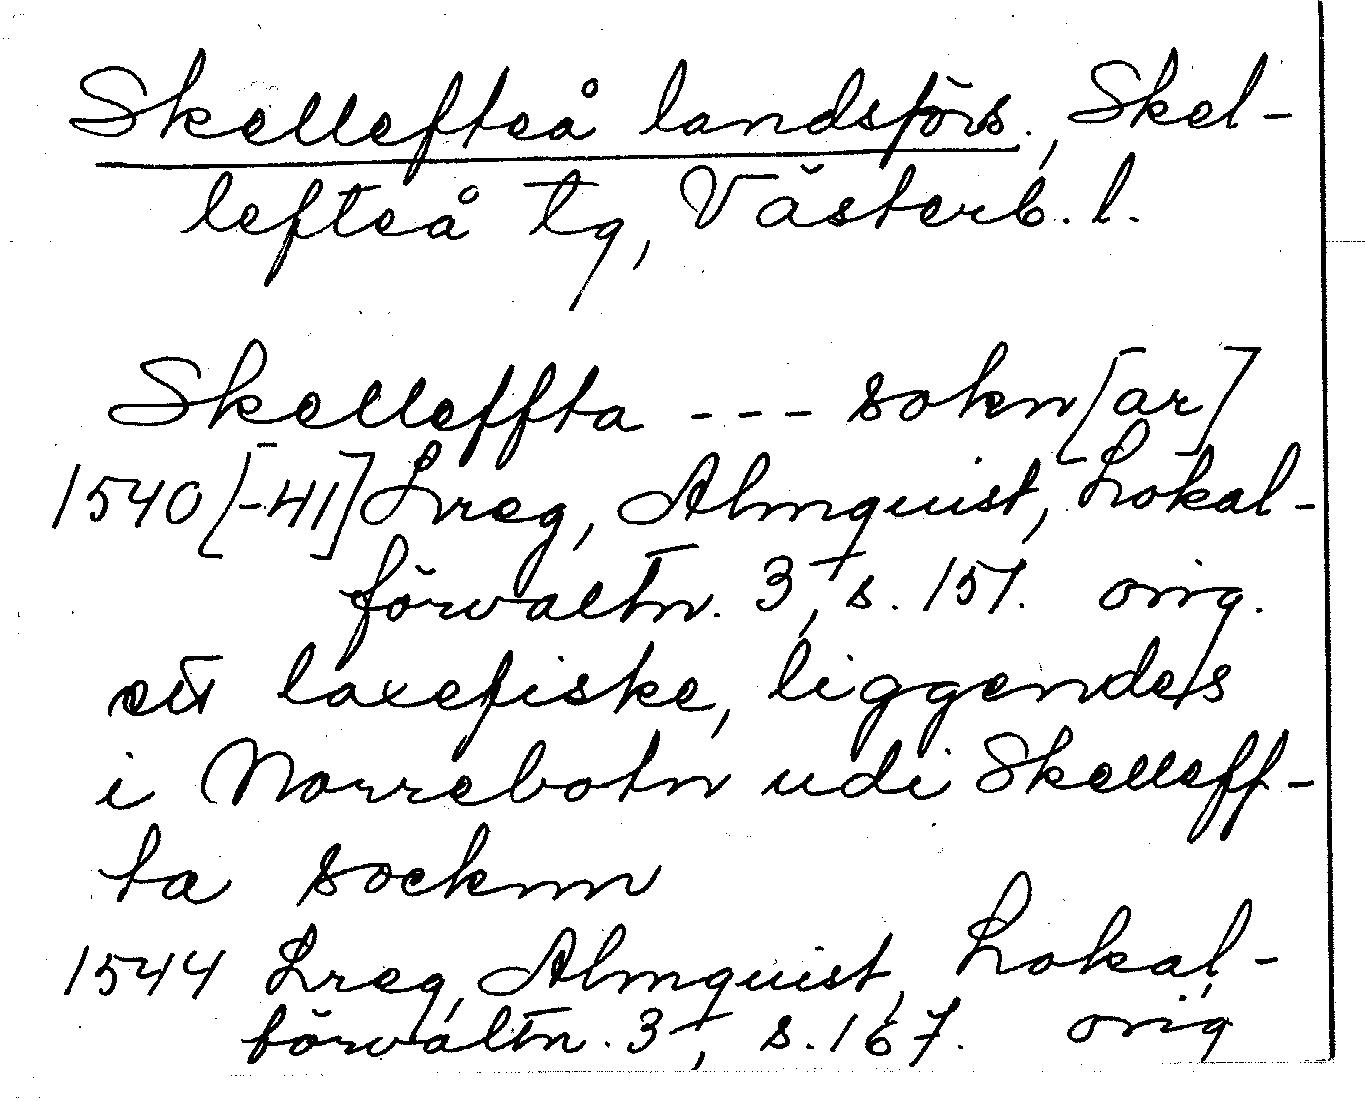 Skellefteå landsförs., Skel-
lefteå tg, Västerb. l.
Skelleffta --- sokn[ar]
1540[-41] Lreg, Almquist, Lokal-
förvaltn. 3, s. 151. orig.
ett laxefiske, liggendes
i Norrebotn udi Skelleff-
ta socknn
1544 Lreg, Almquist, Lokal-
förvaltn. 3, s. 167. orig